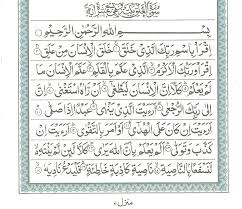 بِسْمِ اللهِ الرَّحْمٰنِ الرَّحِيْمِ
اِقْرَاْ بِاسْمِ رَبِّكَ الَّذِيْ خَلَقَ ۚ خَلَقَ الْاِنْسَانَ مِنْ عَلَقٍ ۚ
اِقْرَاْ وَرَبُّكَ الْاَكْرَمُ ۙ الَّذِيْ عَلَّمَ بِالْقَلَمِ ۙ عَلَّمَ الْاِنْسَانَ مَا
لَمْ يَعْلَمْ ؕ كَلَّاۤ اِنَّ الْاِنْسَانَ لَيَطْغٰۤى ۙ اَنْ رَّاٰهُ اسْتَغْنٰى ؕ اِنَّ
اِلٰى رَبِّكَ الرُّجْعٰى ؕ اَرَءَيْتَ الَّذِيْ يَنْهٰى ۙ عَبْدًا اِذَا صَلّٰى ؕ
اَرَءَيْتَ اِنْ كَانَ عَلَى الْهُدٰۤى ۙ اَوْ اَمَرَ بِالتَّقْوٰى ؕ اَرَءَيْتَ اِنْ
كَذَّبَ وَتَوَلّٰى ؕ اَلَمْ يَعْلَمْ بِاَنَّ اللهَ يَرٰى ؕ كَلَّا لَئِنْ لَّمْ يَنْتَهِ
لَنَسْفَعًۢا بِالنَّاصِيَةِ ۙ نَاصِيَةٍ كَاذِبَةٍ خَاطِئَةٍ ۚ
منزل